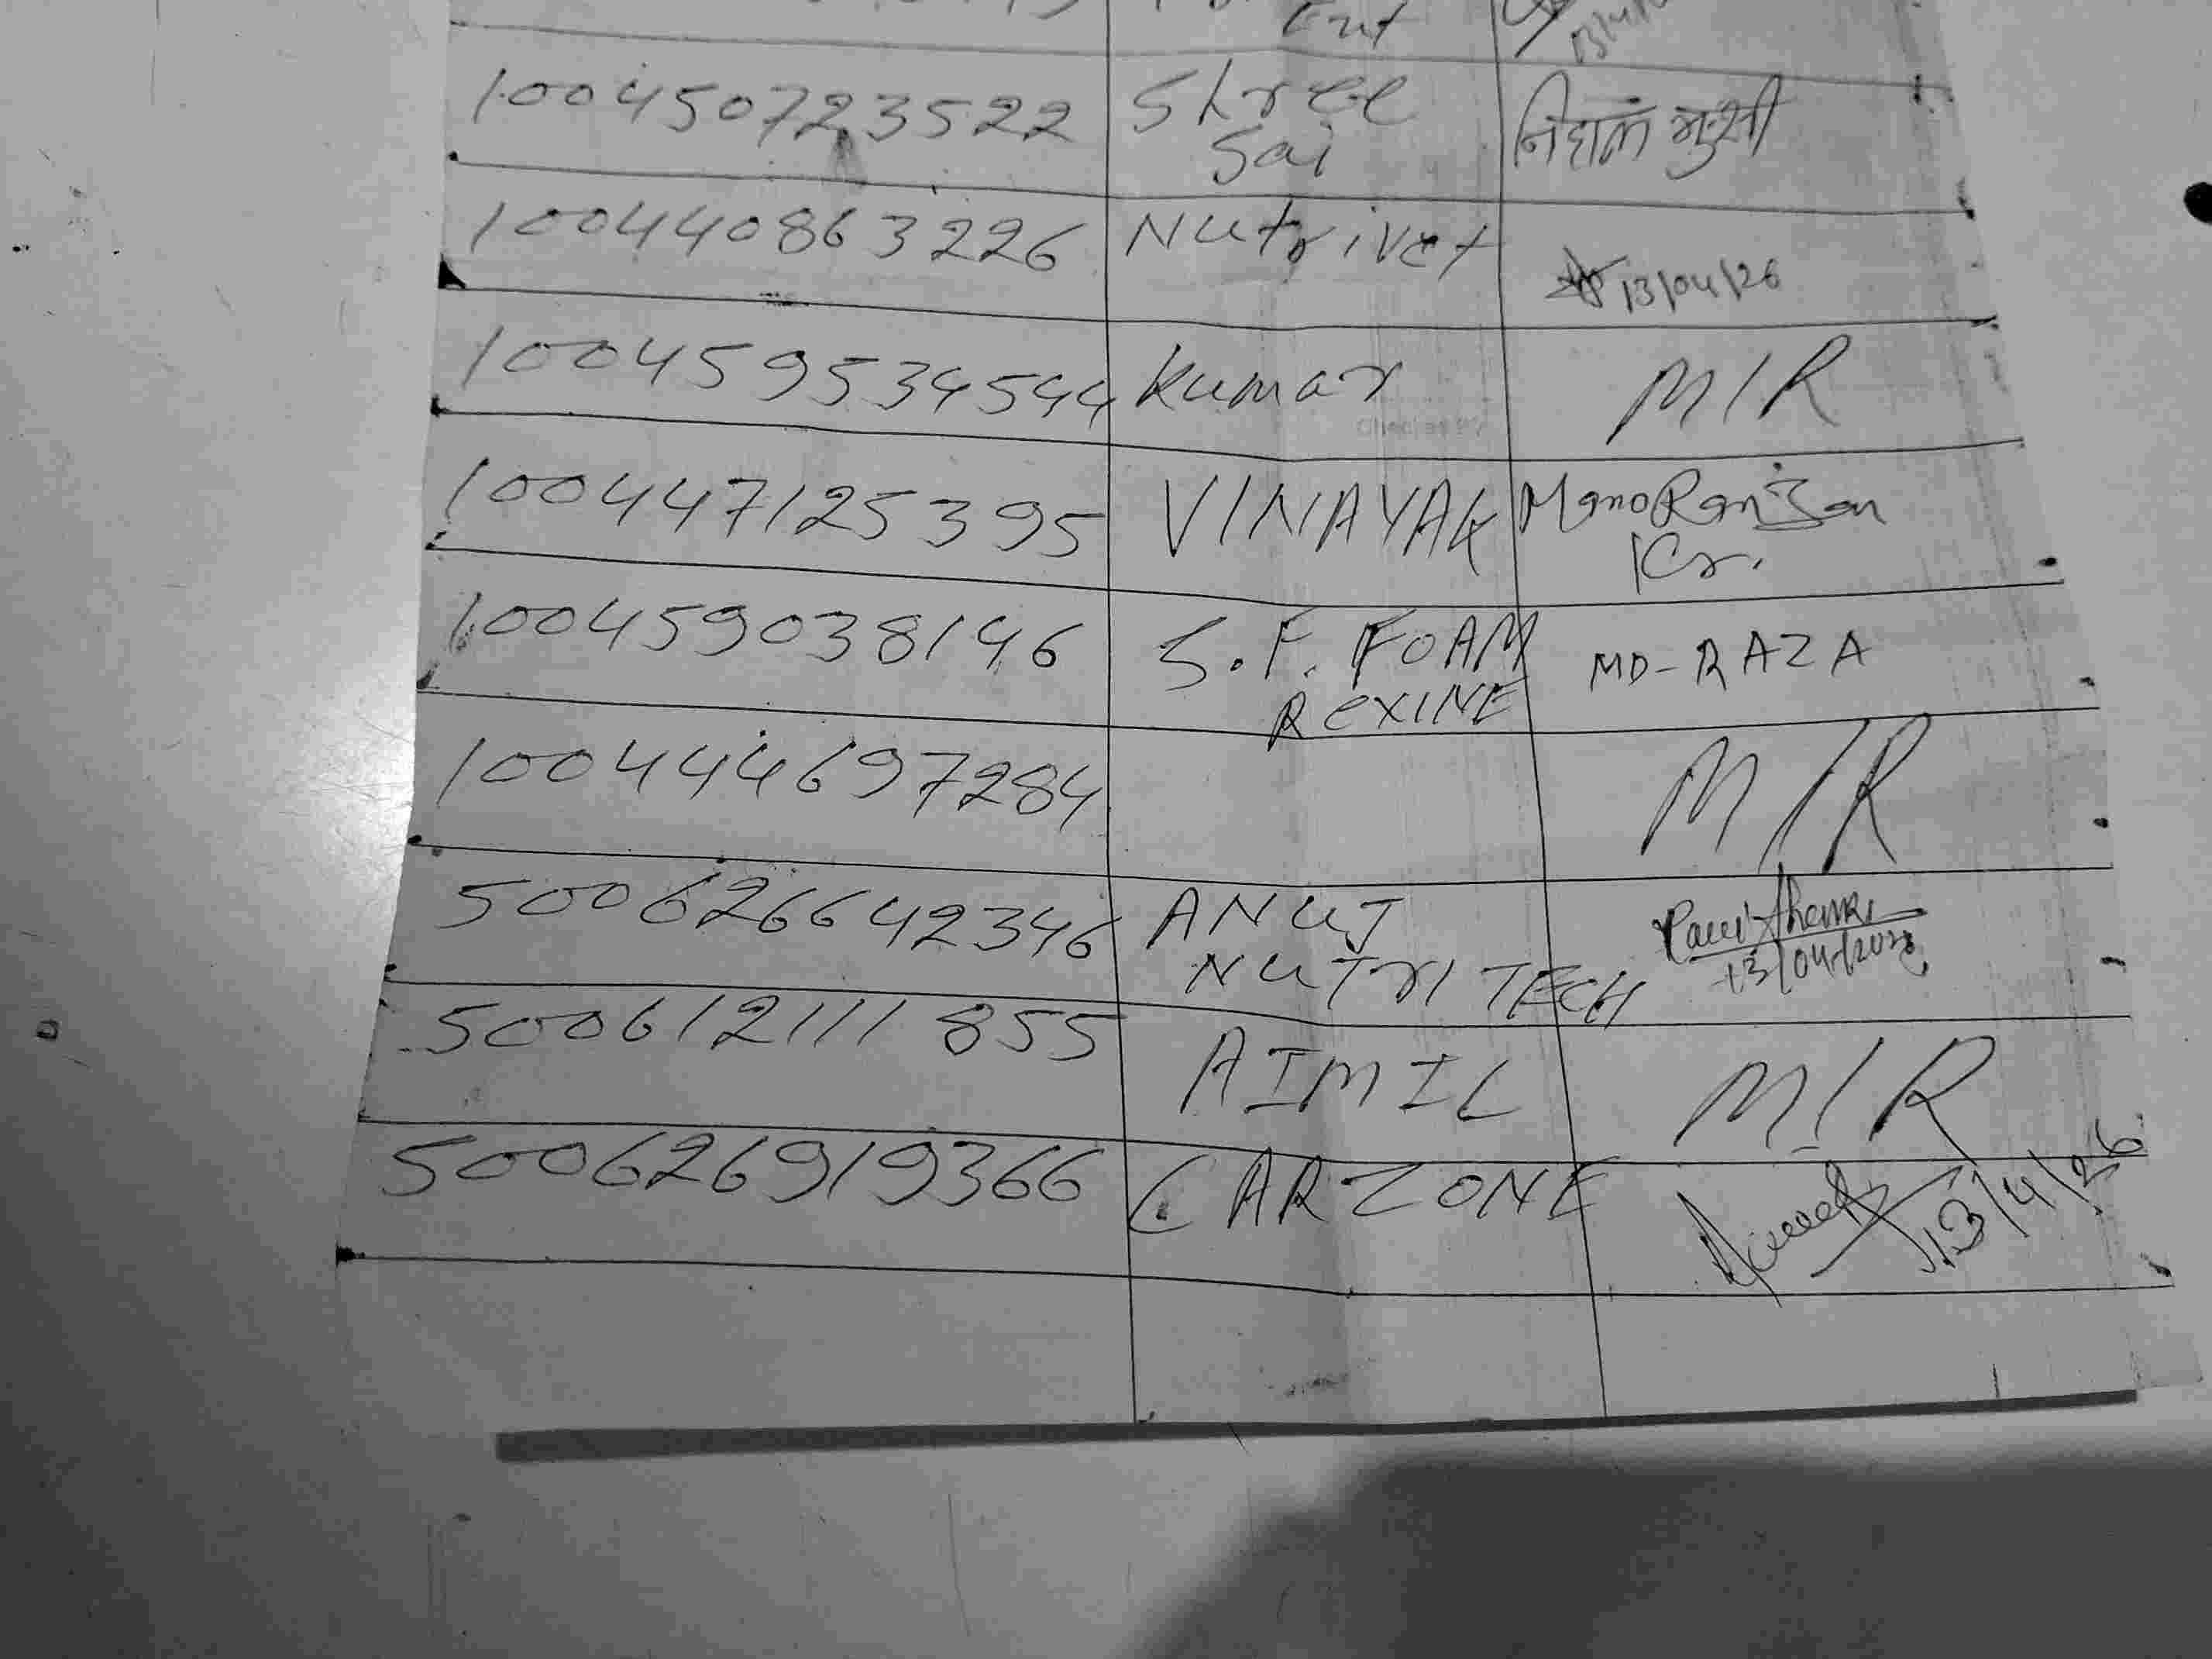 Ent
13/4/
100450723522 Shree
Sai
100440863226 Nutrivet 13/04/26
100459534544 Kumar M/R
100447125395 VINAYAK ManoRanjan
Kr.
100459038146 S.F. FOAM MD-RAZA
REXINE
100444697284 M/R
500626642346 ANUJ
NUTRITECH 13/04/2026
500612111855 AIMIL M/R
500626919366 CARZONE 13/4/26